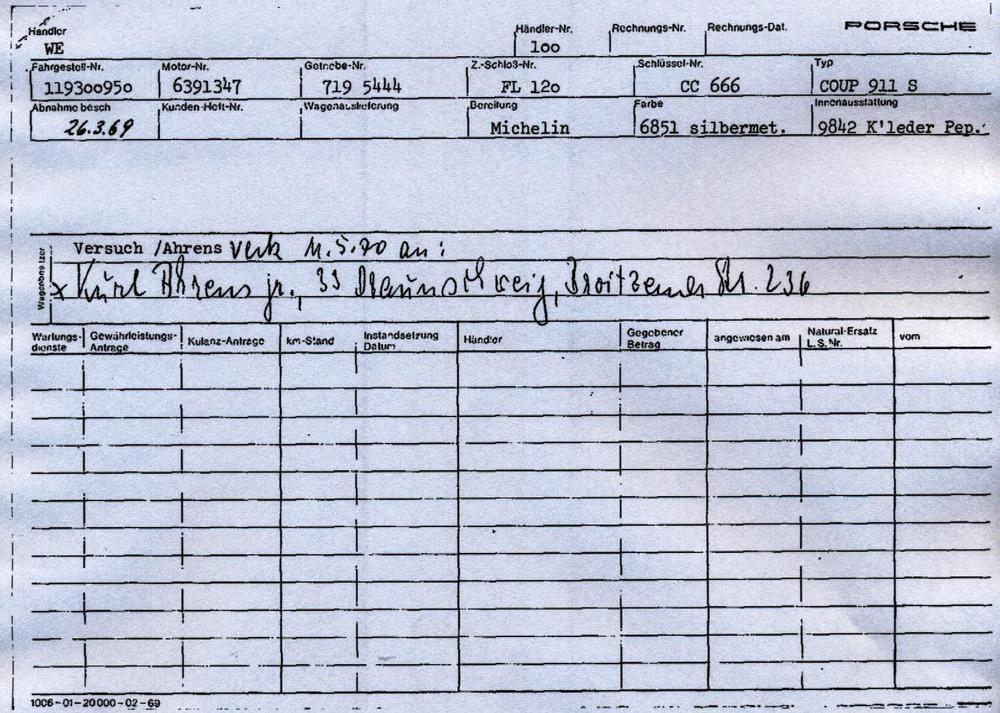 Händler Händler-Nr. Rechnungs-Nr. Rechnungs-Dat. PORSCHE
WE 100
Fahrgestell-Nr. Motor-Nr. Getriebe-Nr. Z.-Schloß-Nr. Schlüssel-Nr. Typ
119300950 6391347 719 5444 FL 120 CC 666 COUP 911 S
Abnahme besch Kunden-Heft-Nr. Wagenauslieferung Bereifung Farbe Innenausstattung
26.3.69 Michelin 6851 silbermet. 9842 K'leder Pep.
Versuch /Ahrens verk 11.5.70 an:
x Kurt Ahrens jr., 33 Braunschweig, Broitzemer Str. 236
Wartungs- Gewährleistungs- Kulanz-Anträge km-Stand Instandsetzung Händler Gegebener angewiesen am Natural-Ersatz vom
dienste Anträge Datum Betrag L.S.Nr.
1006-01-20000-02-69